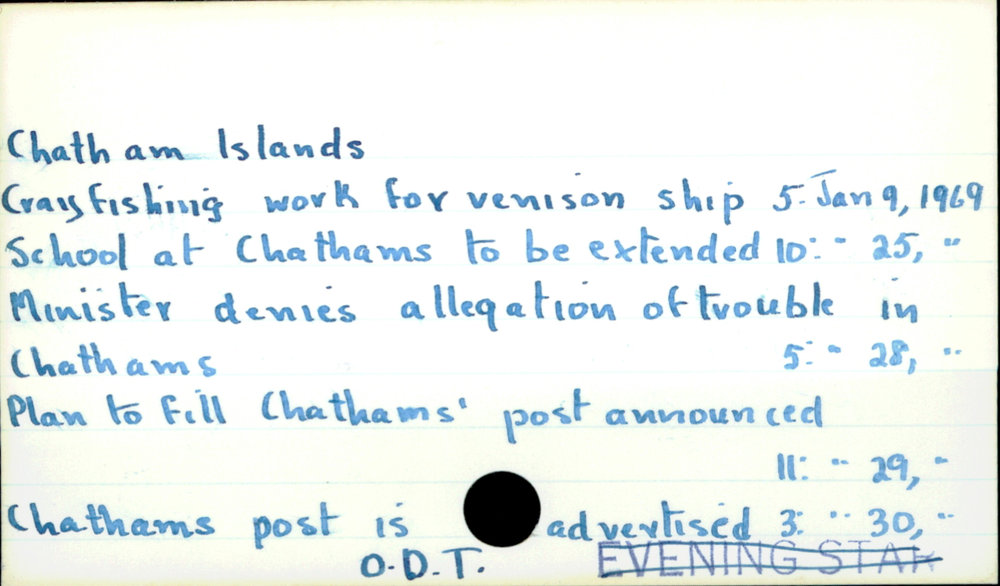 Chatham Islands
Crayfishing work for venison ship 5: Jan 9, 1969
School at Chathams to be extended 10: " 25, "
Minister denies allegation of trouble in
Chathams 5: " 28, "
Plan to fill Chathams' post announced
11: " 29, "
Chathams post is advertised 3: " 30, "
O.D.T. EVENING STAR